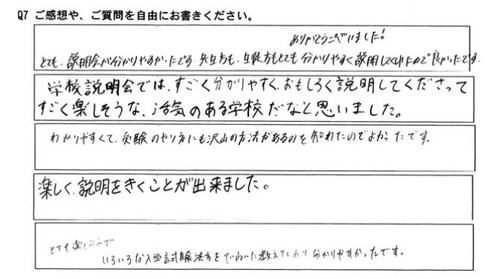 Q7 ご感想や、ご質問を自由にお書きください。
ありがとうございました!
とても、説明会が分かりやすかったです。先生方も、生徒方もとても分かりやすく説明してくれたので良かったです。
学校説明会では、すごく分かりやすく、おもしろく説明してくださって
すごく楽しそうな、活気のある学校だなと思いました。
わかりやすくて、受験のやり方にも沢山の方法があるのを知れたのでよかったです。
楽しく説明をきくことが出来ました。
とても楽しそうで
いろいろな入学試験方法をていねいに教えてくれて分かりやすかったです。